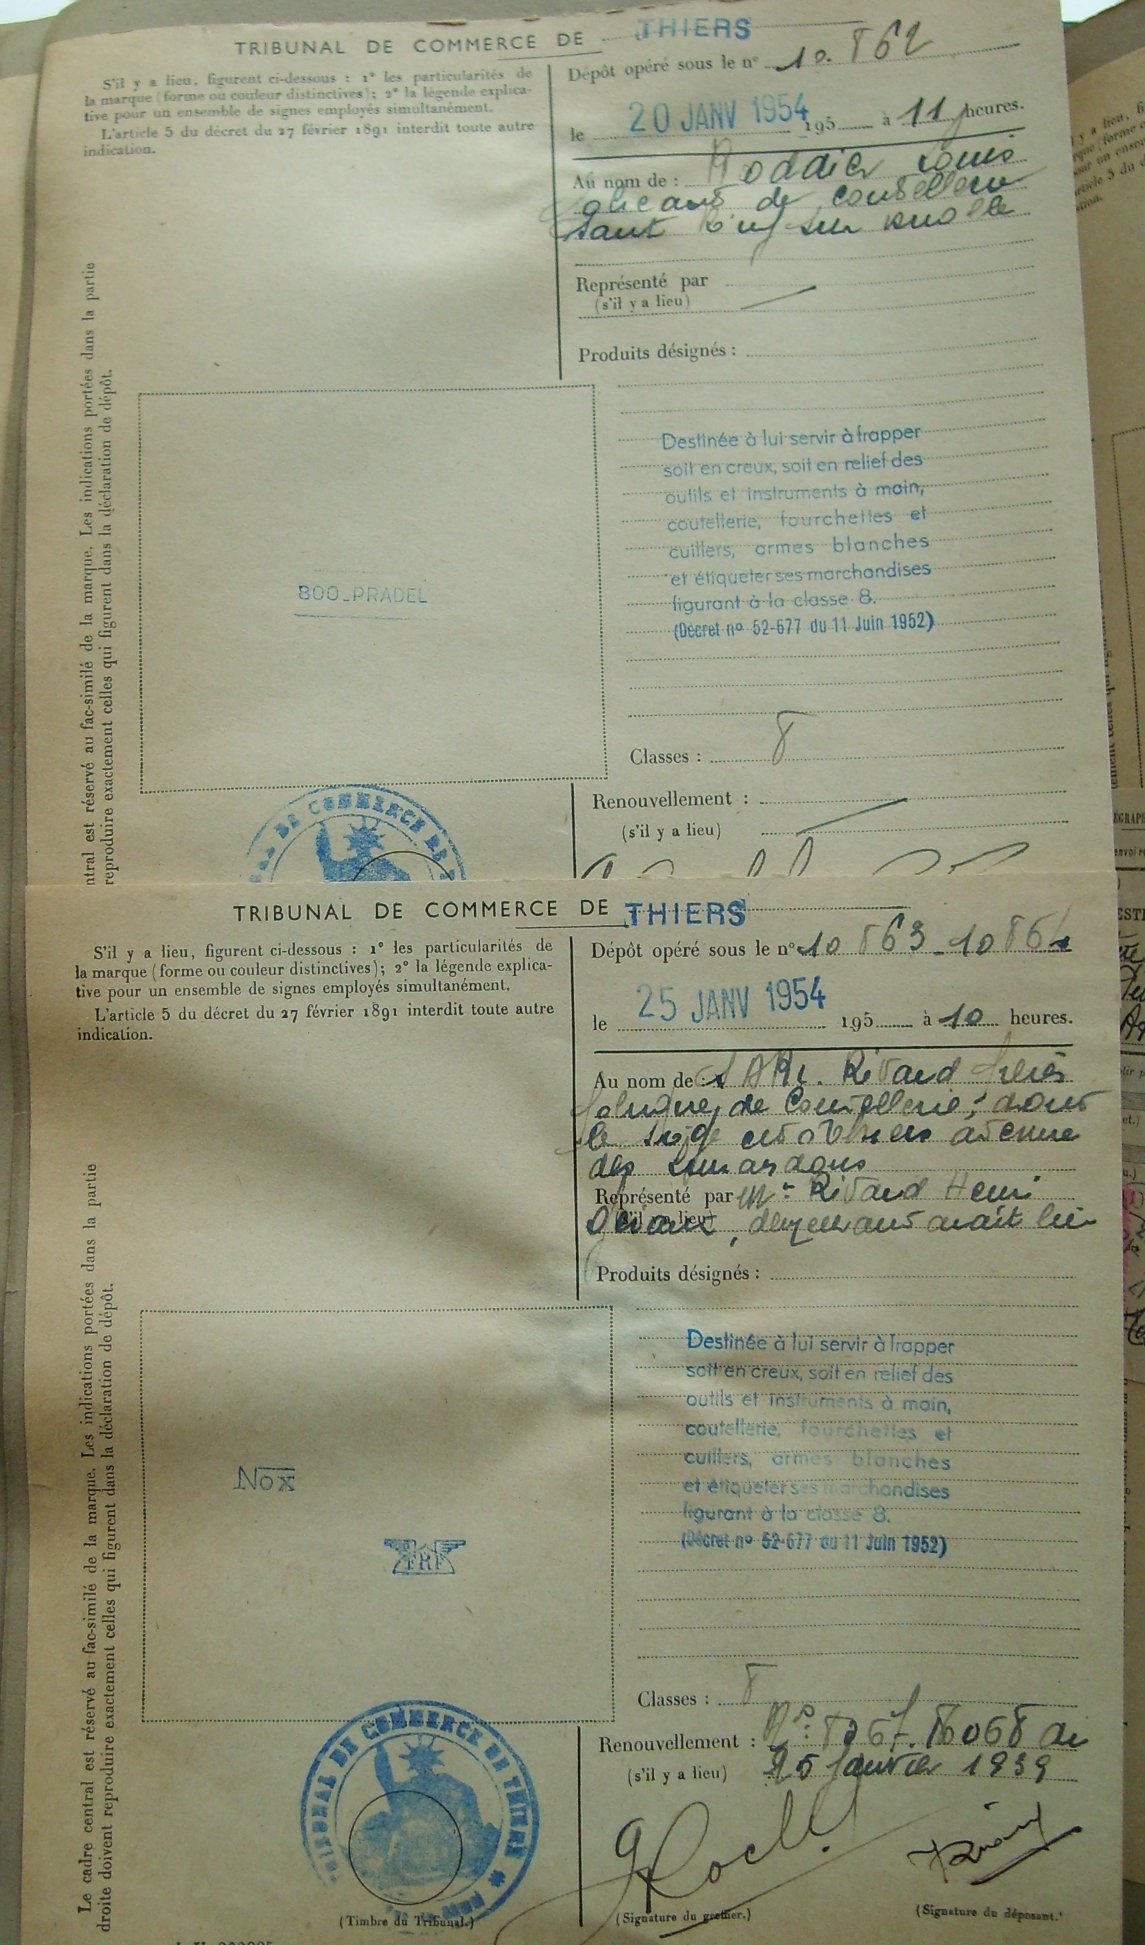 TRIBUNAL DE COMMERCE DE THIERS
S'il y a lieu, figurent ci-dessous : 1° les particularités de
la marque (forme ou couleur distinctives); 2° la légende explica-
tive pour un ensemble de signes employés simultanément.
L'article 5 du décret du 27 février 1891 interdit toute autre
indication.
Dépôt opéré sous le n° 10.862
le 20 JANV 1954 195 à 11 heures.
Au nom de : Roddier Louis
de coutellerie
sur
Représenté par
(s'il y a lieu)
Produits désignés :
Destinée à lui servir à frapper
soit en creux, soit en relief des
outils et instruments à main,
coutellerie, fourchettes et
cuillers, armes blanches
et étiqueter ses marchandises
figurant à la classe 8.
(Décret n° 52-677 du 11 Juin 1952)
800_PRADEL
Classes : 8
Renouvellement :
(s'il y a lieu)
ntral est réservé au fac-similé de la marque. Les indications portées dans la partie
reproduire exactement celles qui figurent dans la déclaration de dépôt.
DE COMMERCE DE
TRIBUNAL DE COMMERCE DE THIERS
S'il y a lieu, figurent ci-dessous : 1° les particularités de
la marque (forme ou couleur distinctives); 2° la légende explica-
tive pour un ensemble de signes employés simultanément.
L'article 5 du décret du 27 février 1891 interdit toute autre
indication.
Dépôt opéré sous le n° 10863_10864
le 25 JANV 1954 195 à 10 heures.
Au nom de : SARL. Rivaud
de Coutellerie, dont
le siège avenue
des
Représenté par Mr Rivaud Henri
(s'il y a lieu)
Produits désignés :
Destinée à lui servir à frapper
soit en creux, soit en relief des
outils et instruments à main,
coutellerie, fourchettes et
cuillers, armes blanches
et étiqueter ses marchandises
figurant à la classe 8.
(Décret n° 52-677 du 11 Juin 1952)
NOX
Classes : 8
Renouvellement : Nos 8067.8068 du
(s'il y a lieu) 25 Janvier 1939
Le cadre central est réservé au fac-similé de la marque. Les indications portées dans la partie
droite doivent reproduire exactement celles qui figurent dans la déclaration de dépôt.
TRIBUNAL DE COMMERCE DE THIERS
(Timbre du Tribunal.)
(Signature du greffier.)
(Signature du déposant.